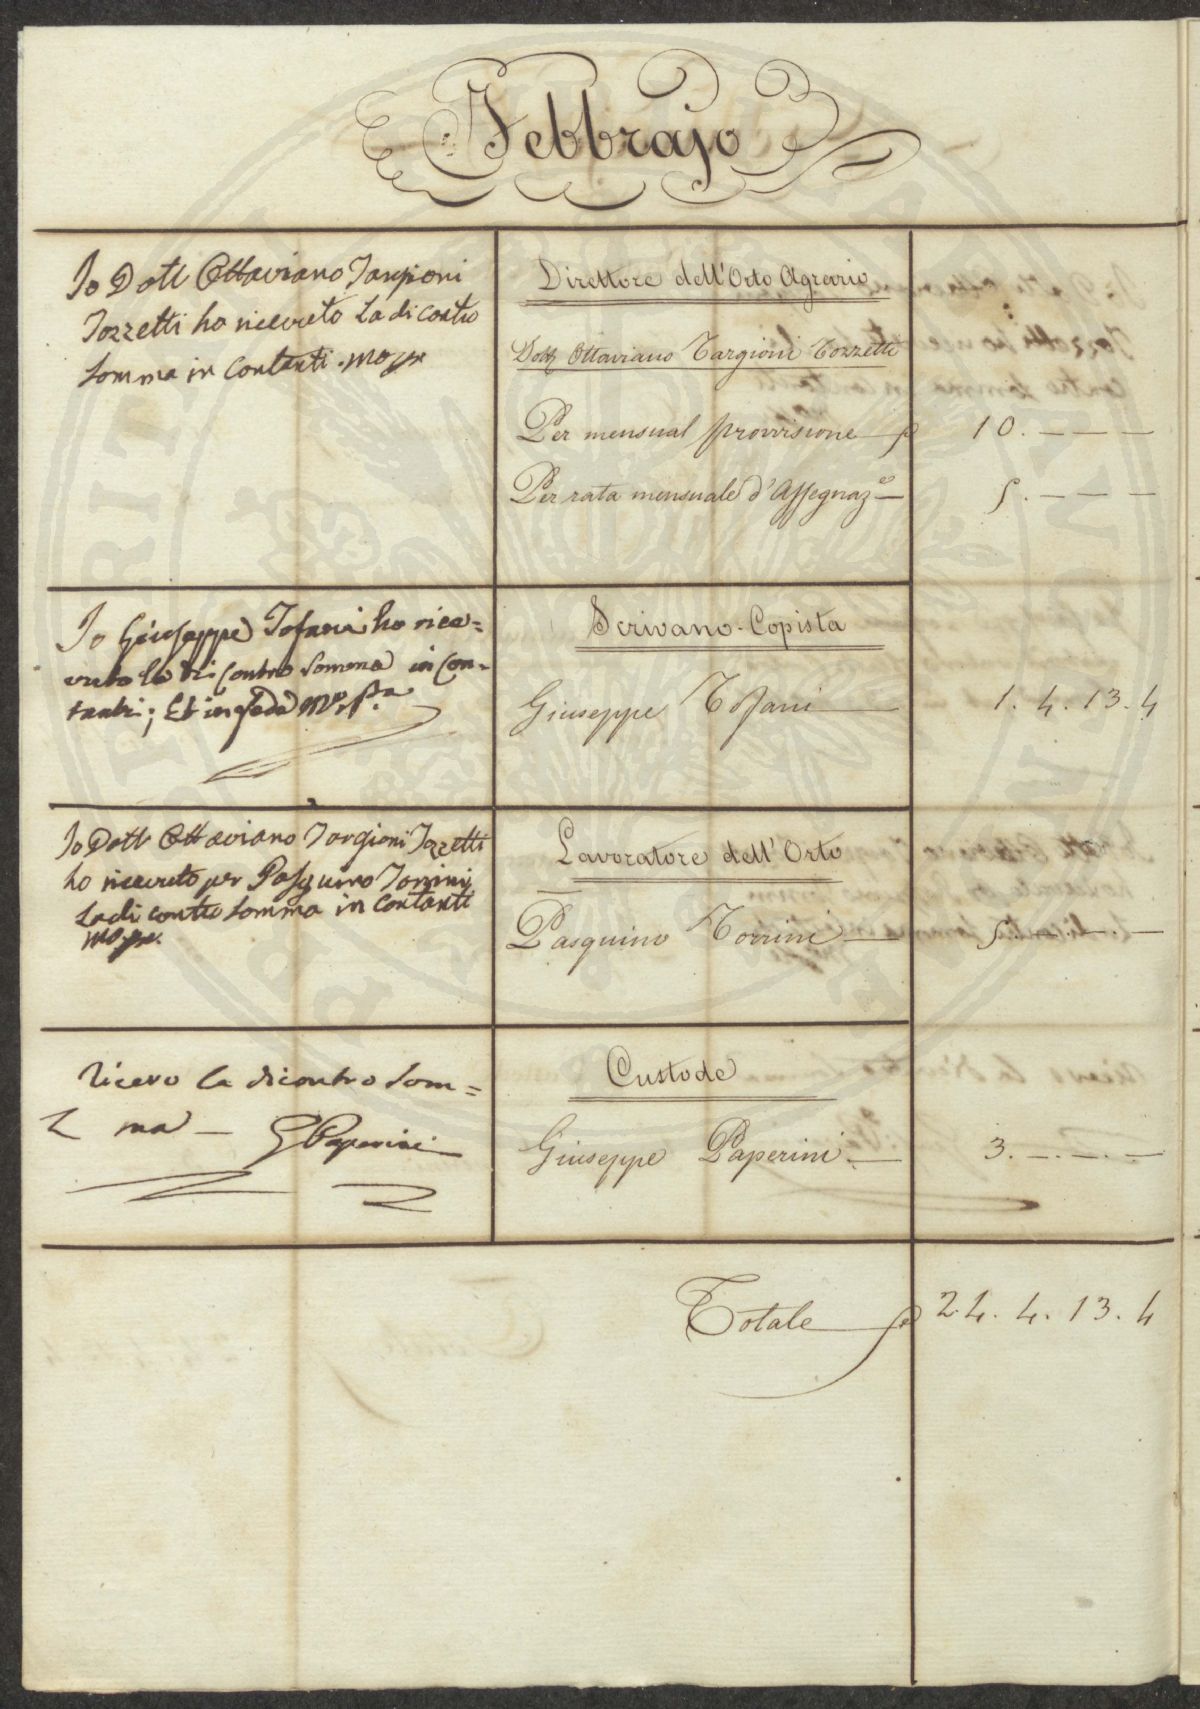 Febbrajo
Io Dott Ottaviano Targioni
Tozzetti ho ricevuto La di contro
Somma in Contanti. mo pp
Direttore dell'Orto Agrario
Dott Ottaviano Targioni Tozzetti
Per mensual provvisione 10. — — —
Per rata mensuale d'Assegnaz.e — 5. — — —
Io Giuseppe Tofani ho rice=
vuto la di Contro Somma in Con=
tanti; Et in fede Mo. pa
Scrivano-Copista
Giuseppe Tofani 1. 4. 13. 4
Io Dott Ottaviano Targioni Tozzetti
ho ricevuto per Pasquino Torrini
La di contro Somma in Contanti
mo pp.
Lavoratore dell'Orto
Pasquino Torrini — 5. —. —. —
Ricevo la dicontro Som=
ma — G Paperini
Custode
Giuseppe Paperini. — 3. —. —. —
Totale 24. 4. 13. 4